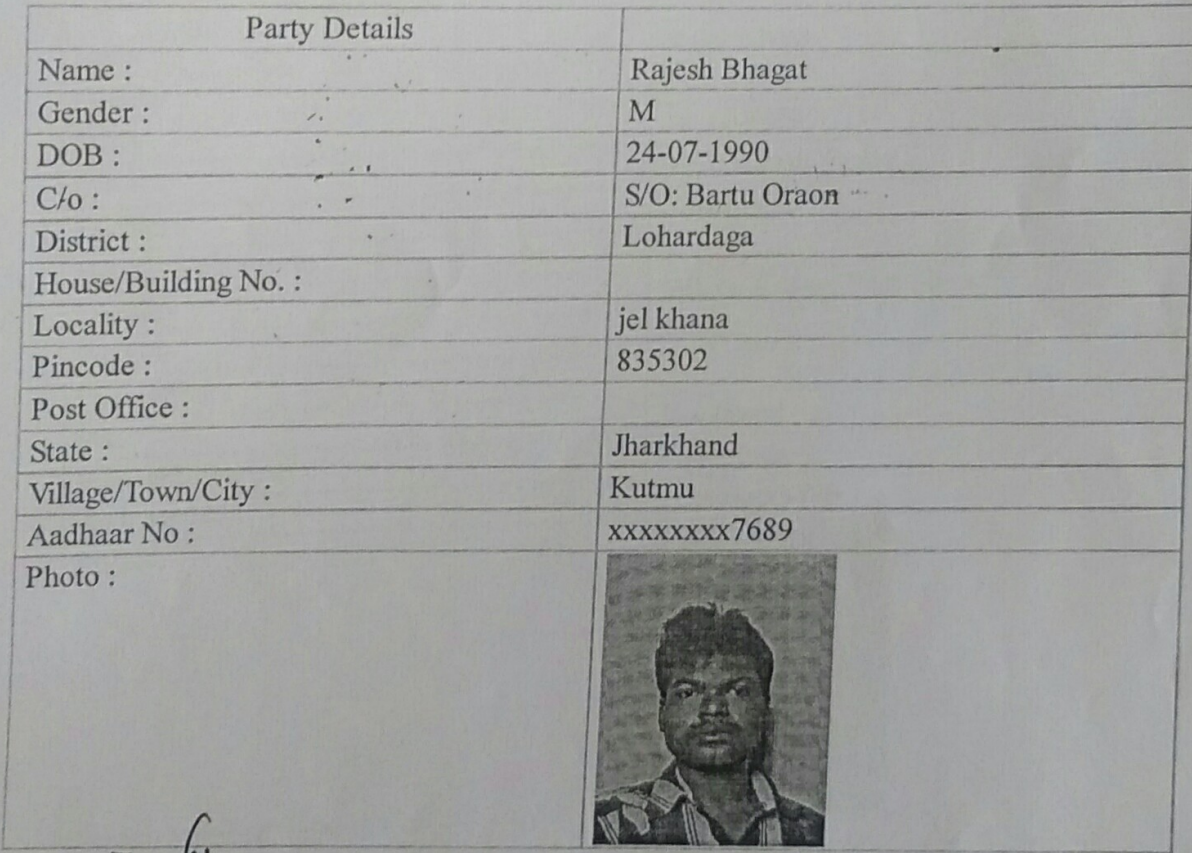 Party Details
Name : Rajesh Bhagat
Gender : M
DOB : 24-07-1990
C/o : S/O: Bartu Oraon
District : Lohardaga
House/Building No. :
Locality : jel khana
Pincode : 835302
Post Office :
State : Jharkhand
Village/Town/City : Kutmu
Aadhaar No : xxxxxxxx7689
Photo :